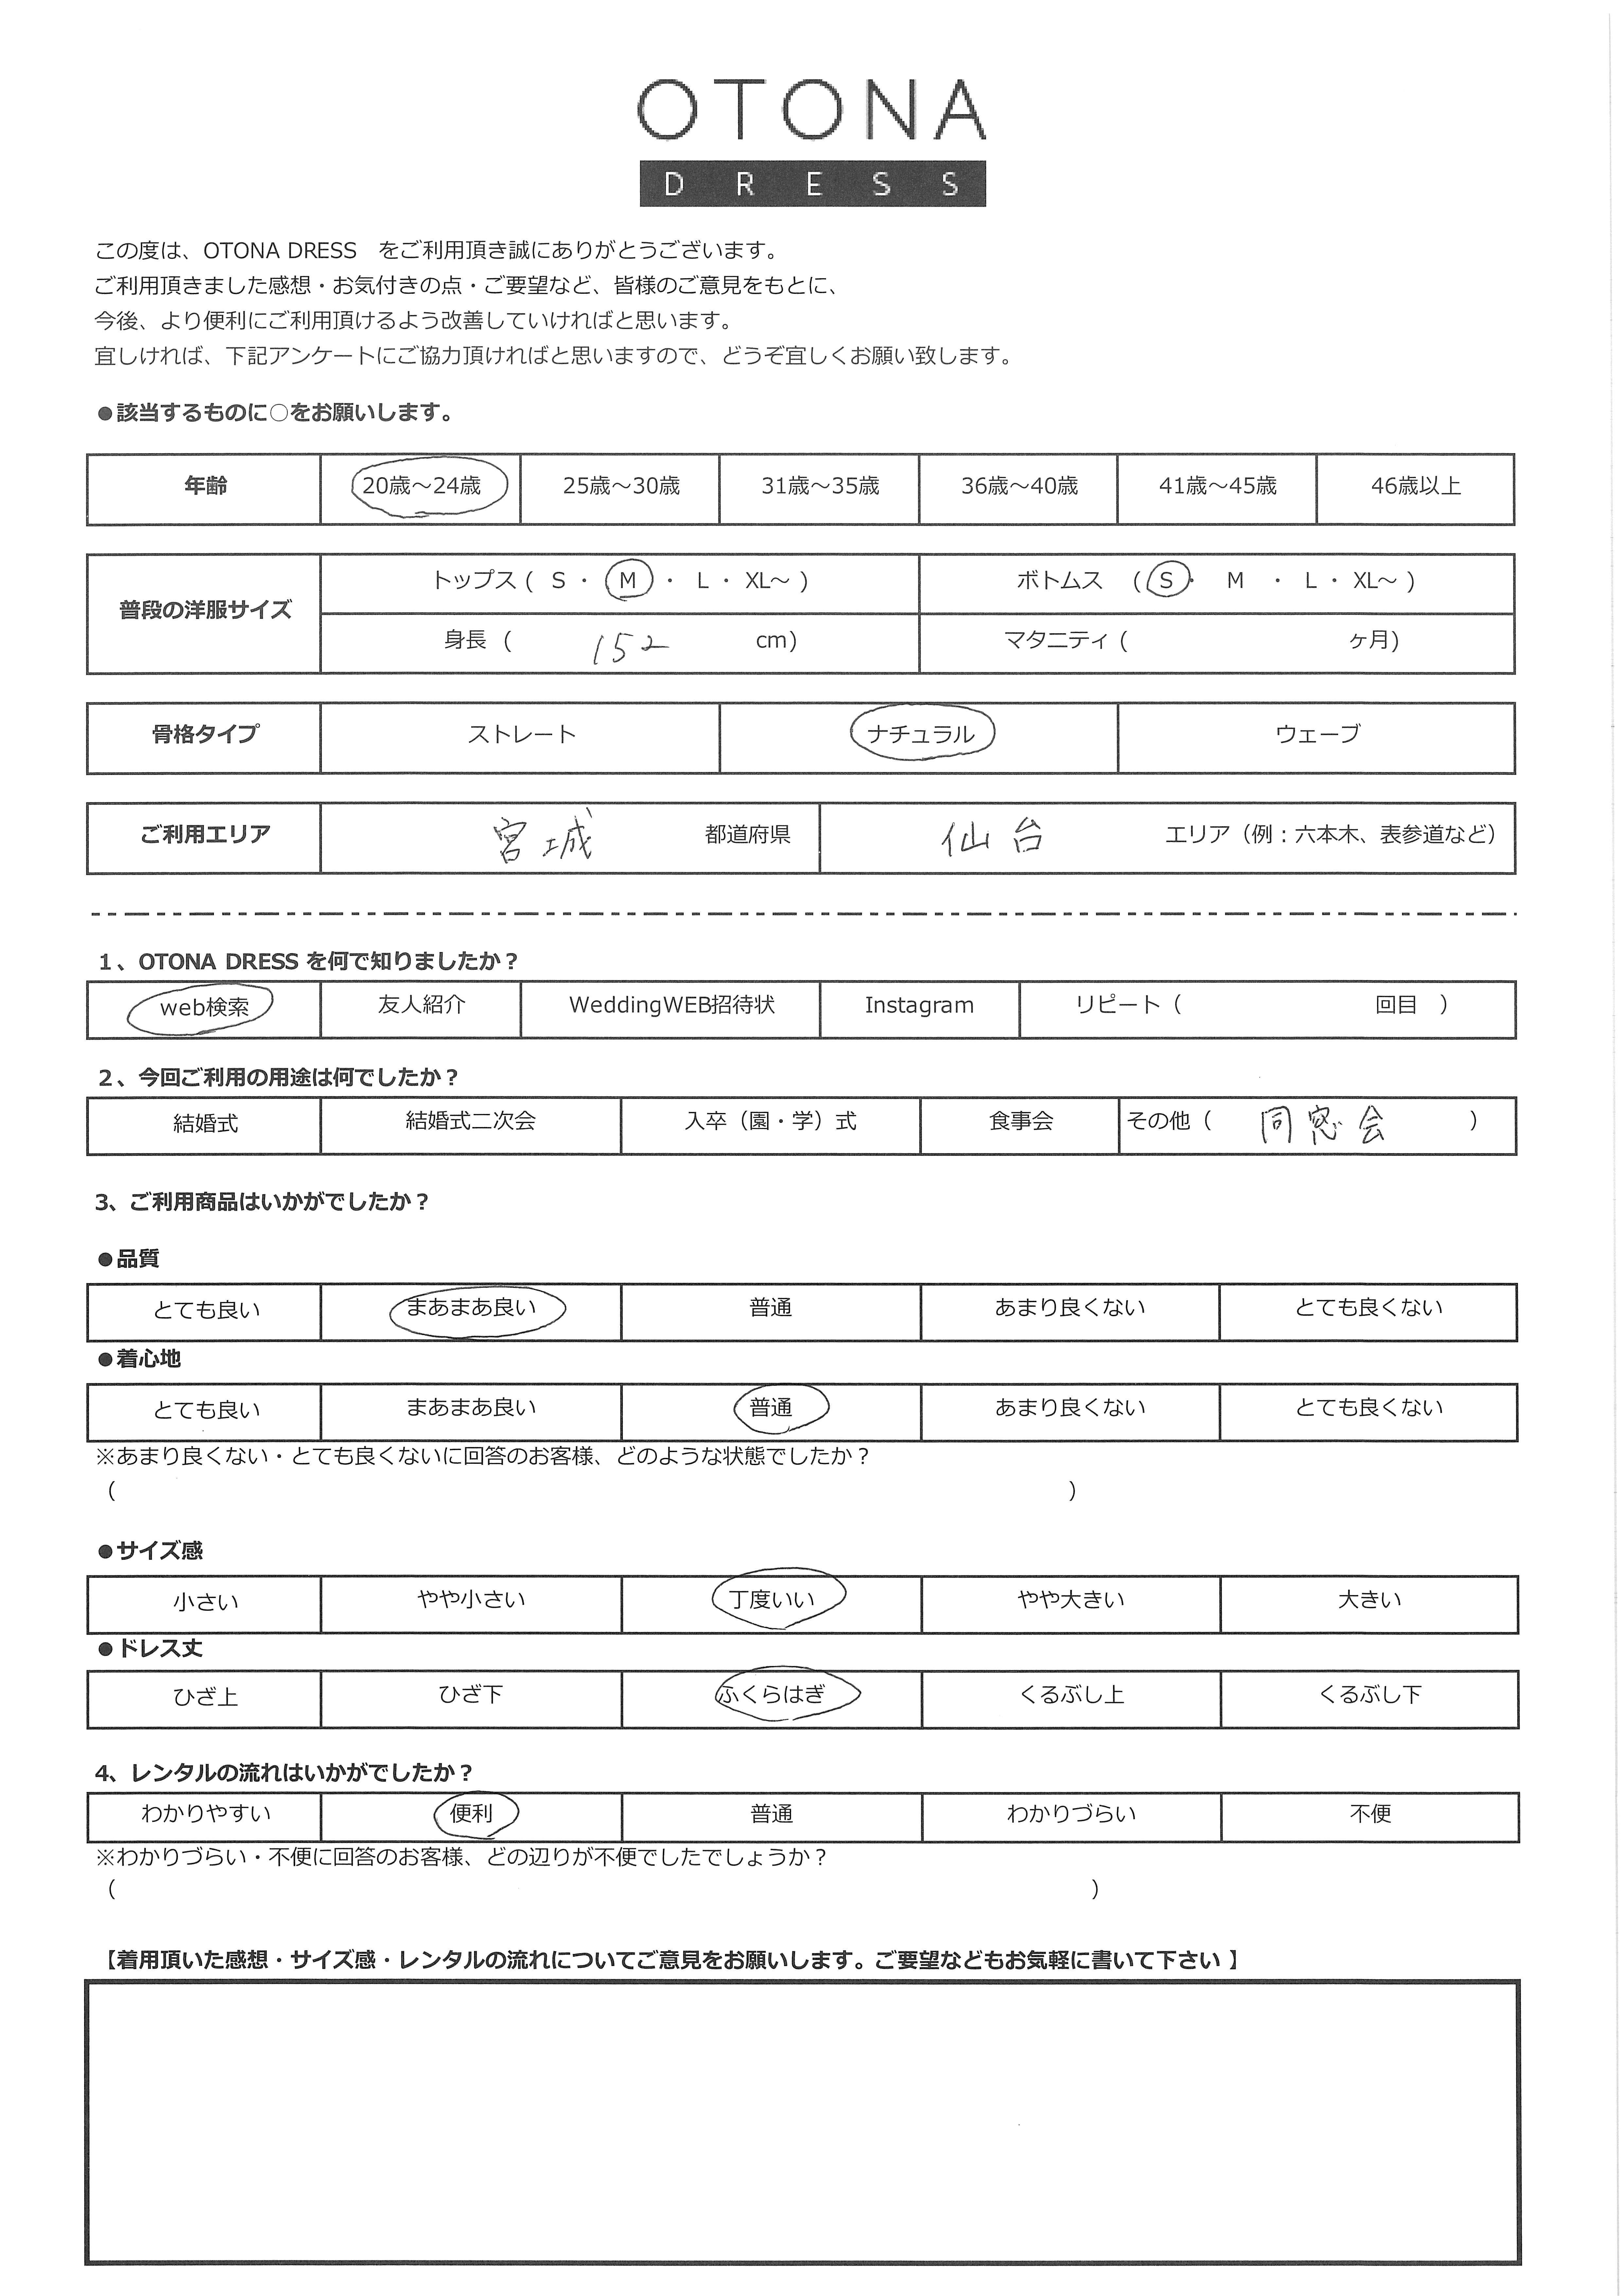 OTONA
DRESS
この度は、OTONA DRESS　をご利用頂き誠にありがとうございます。
ご利用頂きました感想・お気付きの点・ご要望など、皆様のご意見をもとに、
今後、より便利にご利用頂けるよう改善していければと思います。
宜しければ、下記アンケートにご協力頂ければと思いますので、どうぞ宜しくお願い致します。
●該当するものに○をお願いします。
年齢 20歳～24歳 25歳～30歳 31歳～35歳 36歳～40歳 41歳～45歳 46歳以上
普段の洋服サイズ トップス ( S ・ M ・ L ・ XL～ ) ボトムス ( S ・ M ・ L ・ XL～ )
身長 ( 152 cm) マタニティ ( ヶ月)
骨格タイプ ストレート ナチュラル ウェーブ
ご利用エリア 宮城 都道府県 仙台 エリア（例：六本木、表参道など）
1、OTONA DRESS を何で知りましたか？
web検索 友人紹介 WeddingWEB招待状 Instagram リピート（ 回目 ）
2、今回ご利用の用途は何でしたか？
結婚式 結婚式二次会 入卒（園・学）式 食事会 その他（ 同窓会 ）
3、ご利用商品はいかがでしたか？
●品質
とても良い まあまあ良い 普通 あまり良くない とても良くない
●着心地
とても良い まあまあ良い 普通 あまり良くない とても良くない
※あまり良くない・とても良くないに回答のお客様、どのような状態でしたか？
（ ）
●サイズ感
小さい やや小さい 丁度いい やや大きい 大きい
●ドレス丈
ひざ上 ひざ下 ふくらはぎ くるぶし上 くるぶし下
4、レンタルの流れはいかがでしたか？
わかりやすい 便利 普通 わかりづらい 不便
※わかりづらい・不便に回答のお客様、どの辺りが不便でしたでしょうか？
（ ）
【着用頂いた感想・サイズ感・レンタルの流れについてご意見をお願いします。ご要望などもお気軽に書いて下さい 】